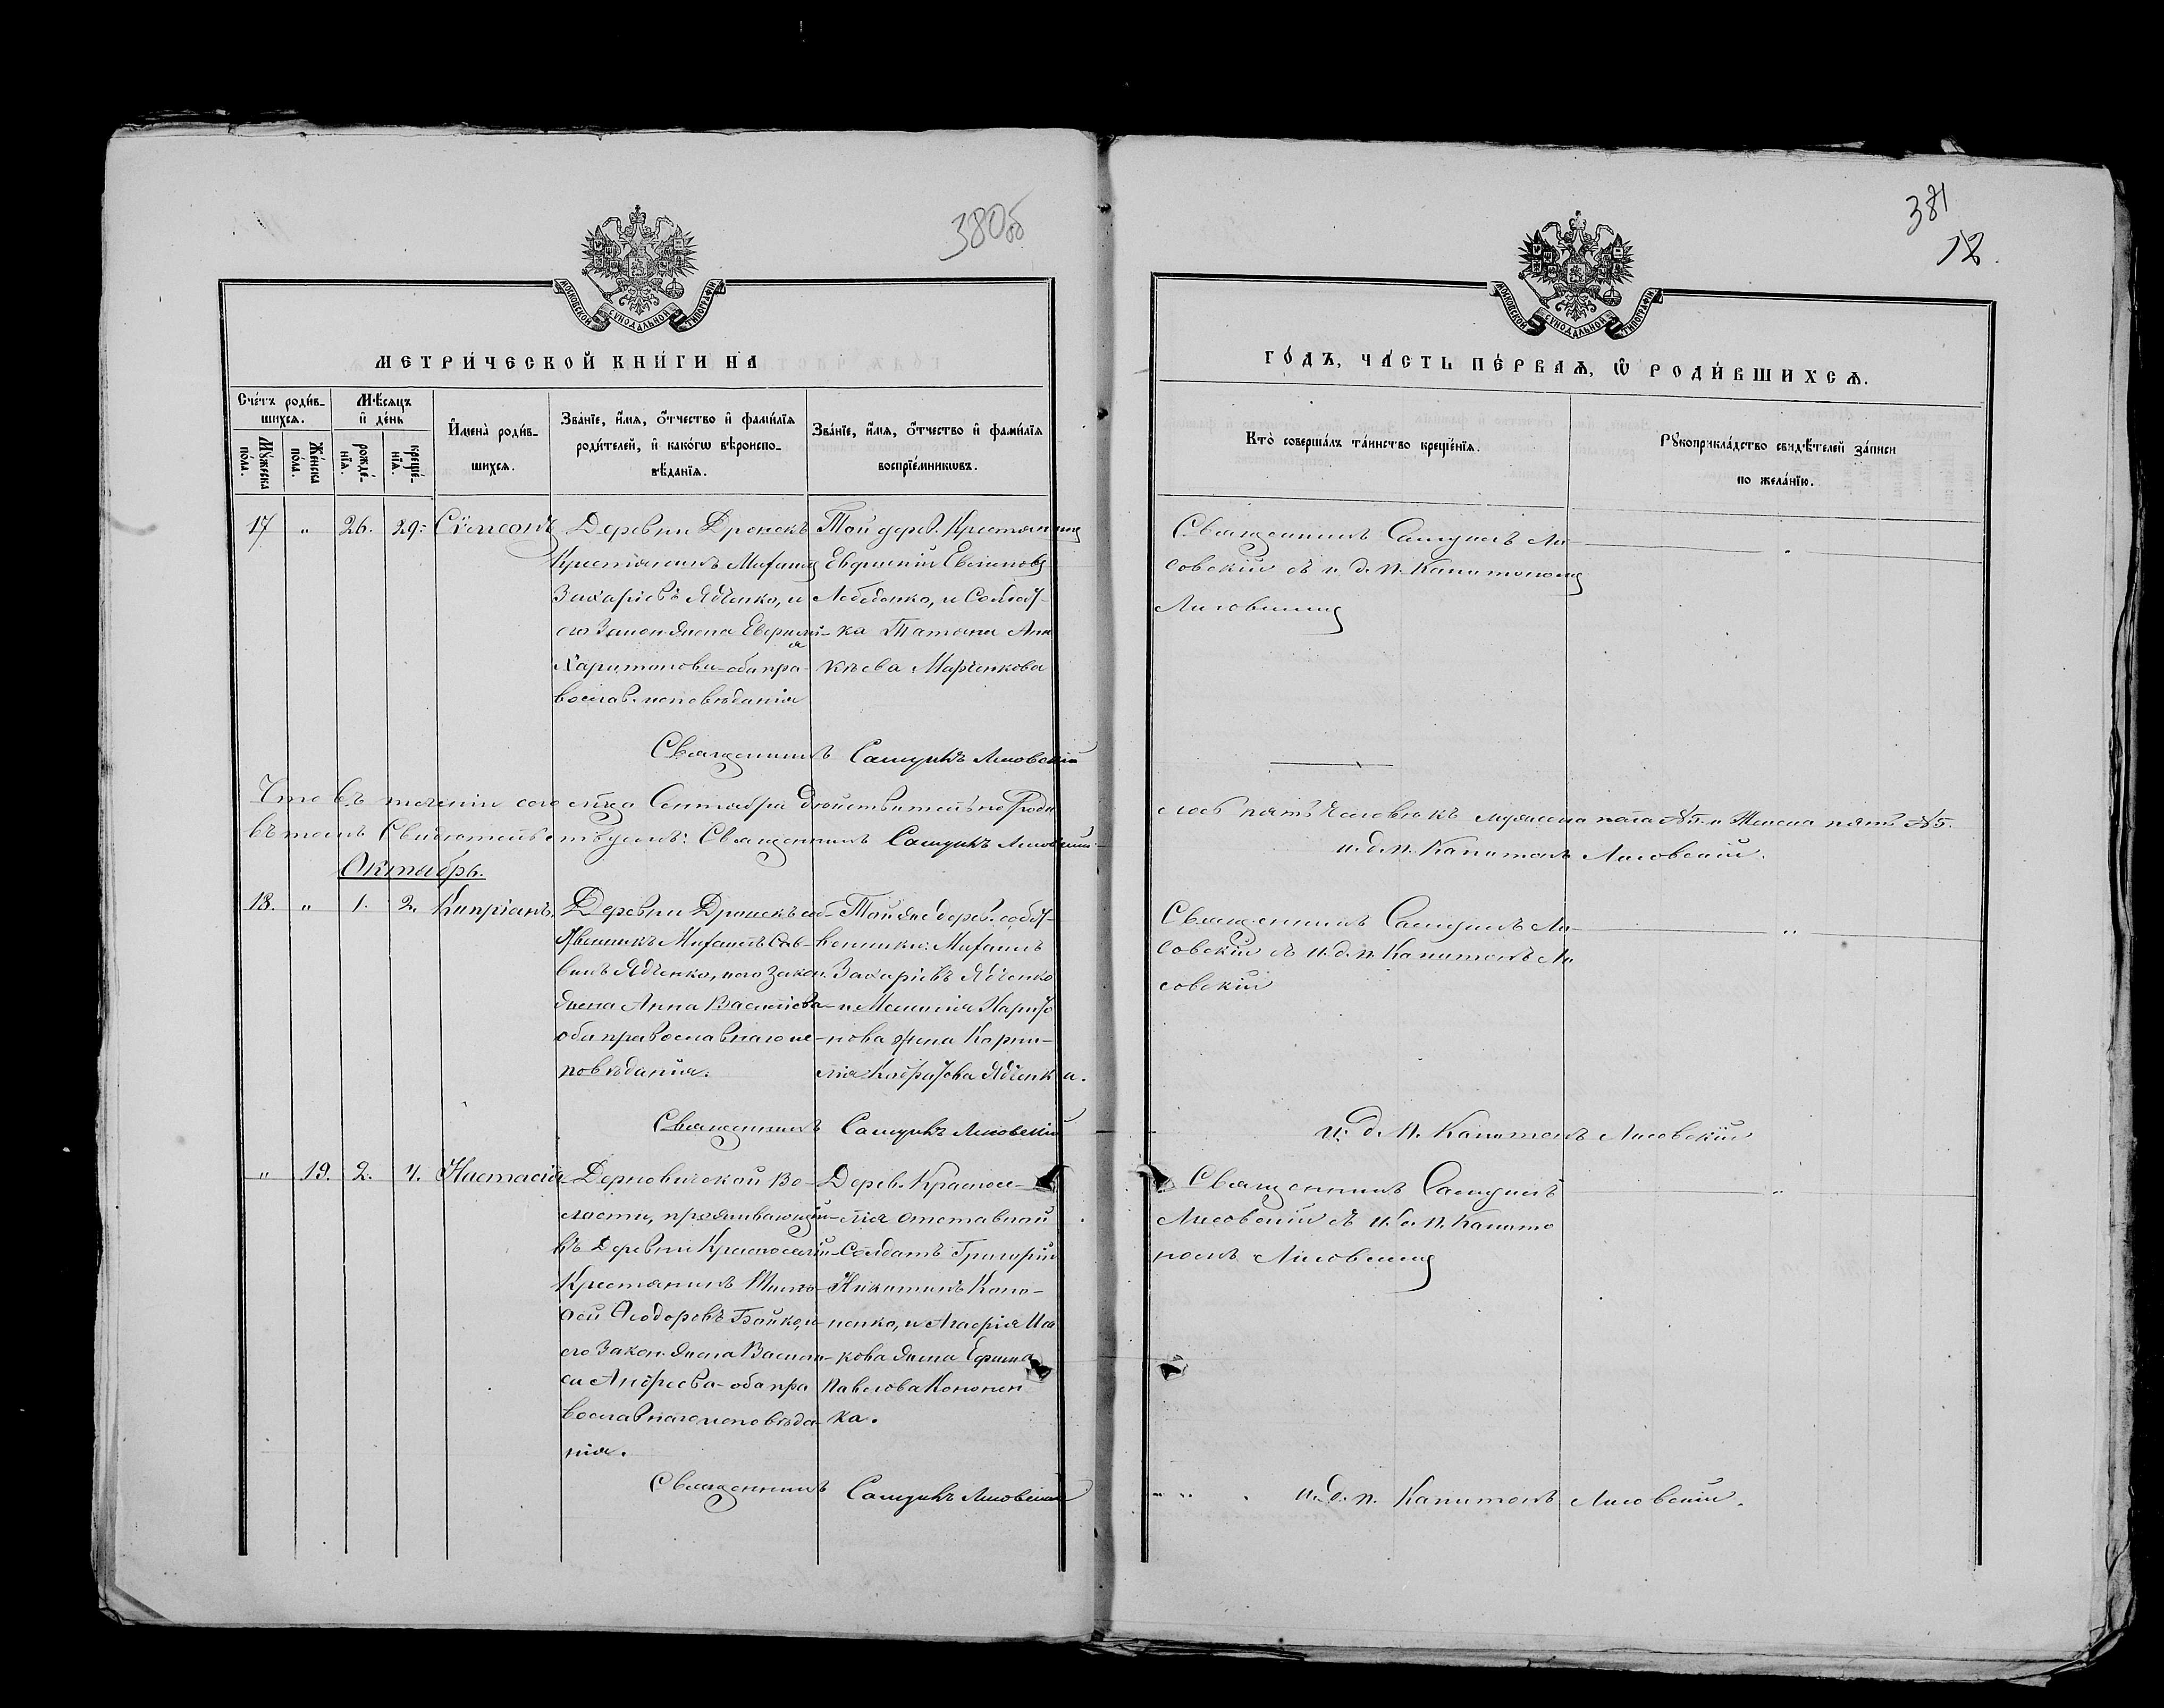 380об
МОСКОВСКОЙ СУНОДАЛЬНОЙ ТИПОГРАФІИ
МЕТРИ́ЧЕСКОЙ КНИ́ГИ НА
Сче́тъ роди́в-
шихсѧ.
Мꙋ́жеска
по́ла.
Же́нска
по́ла.
Мѣ́сѧцъ
и҆ де́нь
рожде́-
нїѧ.
креще́-
нїѧ.
И҆мена̀ роди́в-
шихсѧ.
Зва́нїе, и҆́мѧ, ѻ҆́тчество и҆ фами́лїѧ
роди́телей, и҆ како́гѡ вѣроиспо-
вѣ́данїѧ.
Зва́нїе, и҆́мѧ, ѻ҆́тчество и҆ фами́лїѧ
воспрїе́мникѡвъ.
17 " 26. 29. Сѵмеонъ
Деревни Дронекъ
Крестьянинъ Михаилъ
Захаріевъ Ядченко, и
его Закон. жена Евгенія
Харитонова оба пра-
вослав. исповѣданія
Той дерев. Крестьянинъ
Лебеденко, и Солдат-
ка Татьяна
Марченкова
Священникъ Самуилъ Лисовскій
Что въ теченіи сего мѣсяца Сентября дѣйствительно Роди
въ томъ Свидѣтельствуемъ: Священникъ Самуилъ Лисовскій
Октябрь.
18. " 1. 2. Кипріанъ.
Деревни Дронекъ соб-
ственникъ Михаилъ Сав-
винъ Ядченко, и его закон.
жена Анна Василіева
оба православнаго ис-
повѣданія.
Той же дерев. собст-
венники: Михаилъ
Захаріевъ Ядченко
и Меланія Харито
нова жена Корни-
лія Ядченка.
Священникъ Самуилъ Лисовскій
" 19. 2. 4. Настасія
Дерновичской Во-
лости, проживающій
въ Деревни Красноселіи
Крестьянинъ Тимо-
ѳей Ѳеодоровъ Бойко, и
его Закон. жена Васили-
са Андреева оба пра
вославнаго исповѣда-
нія.
Дерев. Красносе-
лія отставной
Солдатъ Григорій
Никитинъ Коно-
ненко, и Агафія Иа
кова жена Ефима
Павлова Кононен
ка.
Священникъ Самуилъ Лисовскій
381
12.
МОСКОВСКОЙ СУНОДАЛЬНОЙ ТИПОГРАФІИ
ГО́ДЪ, ЧА́СТЬ ПЕ́РВАѦ, Ѡ҆ РОДИ́ВШИХСѦ.
Кто̀ соверша́лъ та́инство креще́нїѧ.
Рꙋкоприкла́дство свидѣ́телей за́писи
по жела́нїю.
Священникъ Самуилъ Ли-
совскій съ и. д. п. Капитономъ
Лисовскимъ
лось пять человѣкъ мужеска пола №5. и Женска пять №5.
и. д. п. Капитонъ Лисовскій.
Священникъ Самуилъ Ли-
совскій съ и. д. п. Капитонъ Ли
совскій
и. д. п. Капитонъ Лисовскій
Священникъ Самуилъ
Лисовскій съ и. д. п. Капито
номъ Лисовскимъ
и. д. п. Капитонъ Лисовскій.